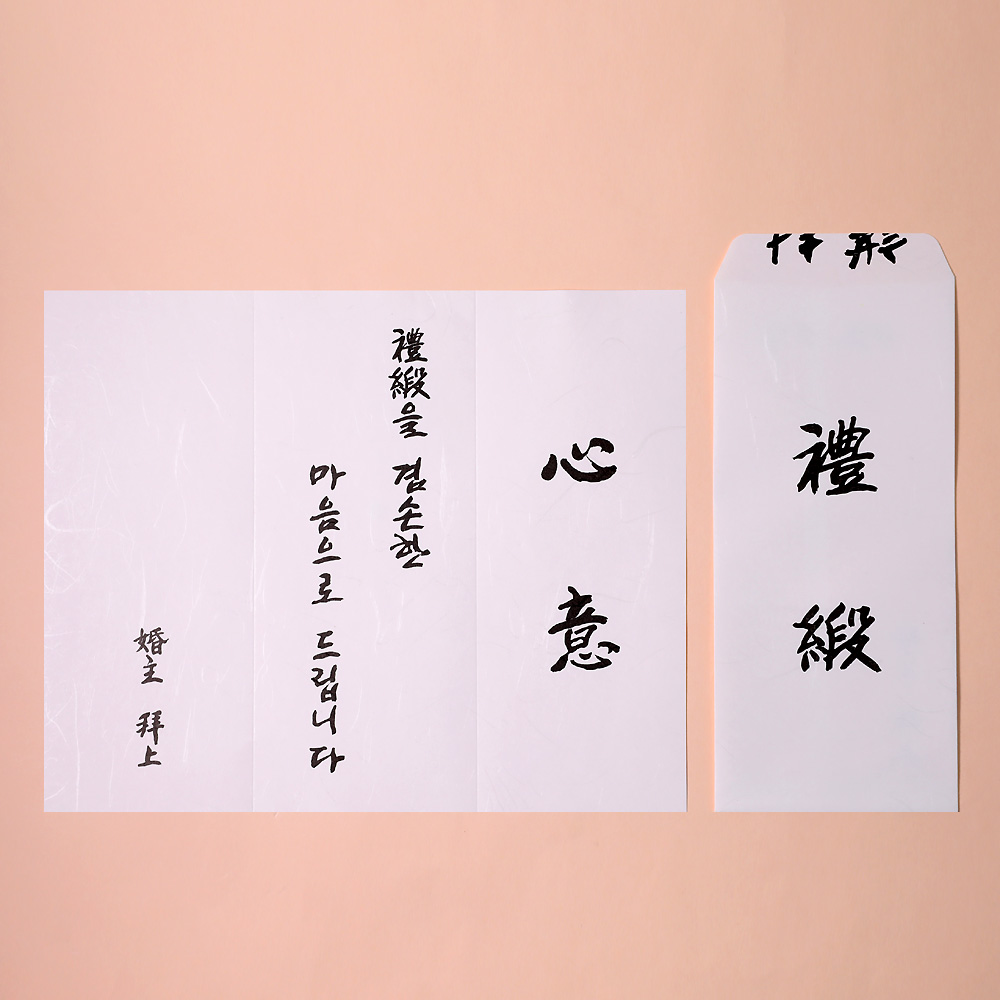 心意
禮緞을 겸손한
마음으로 드립니다
婚主 拜上
禮緞